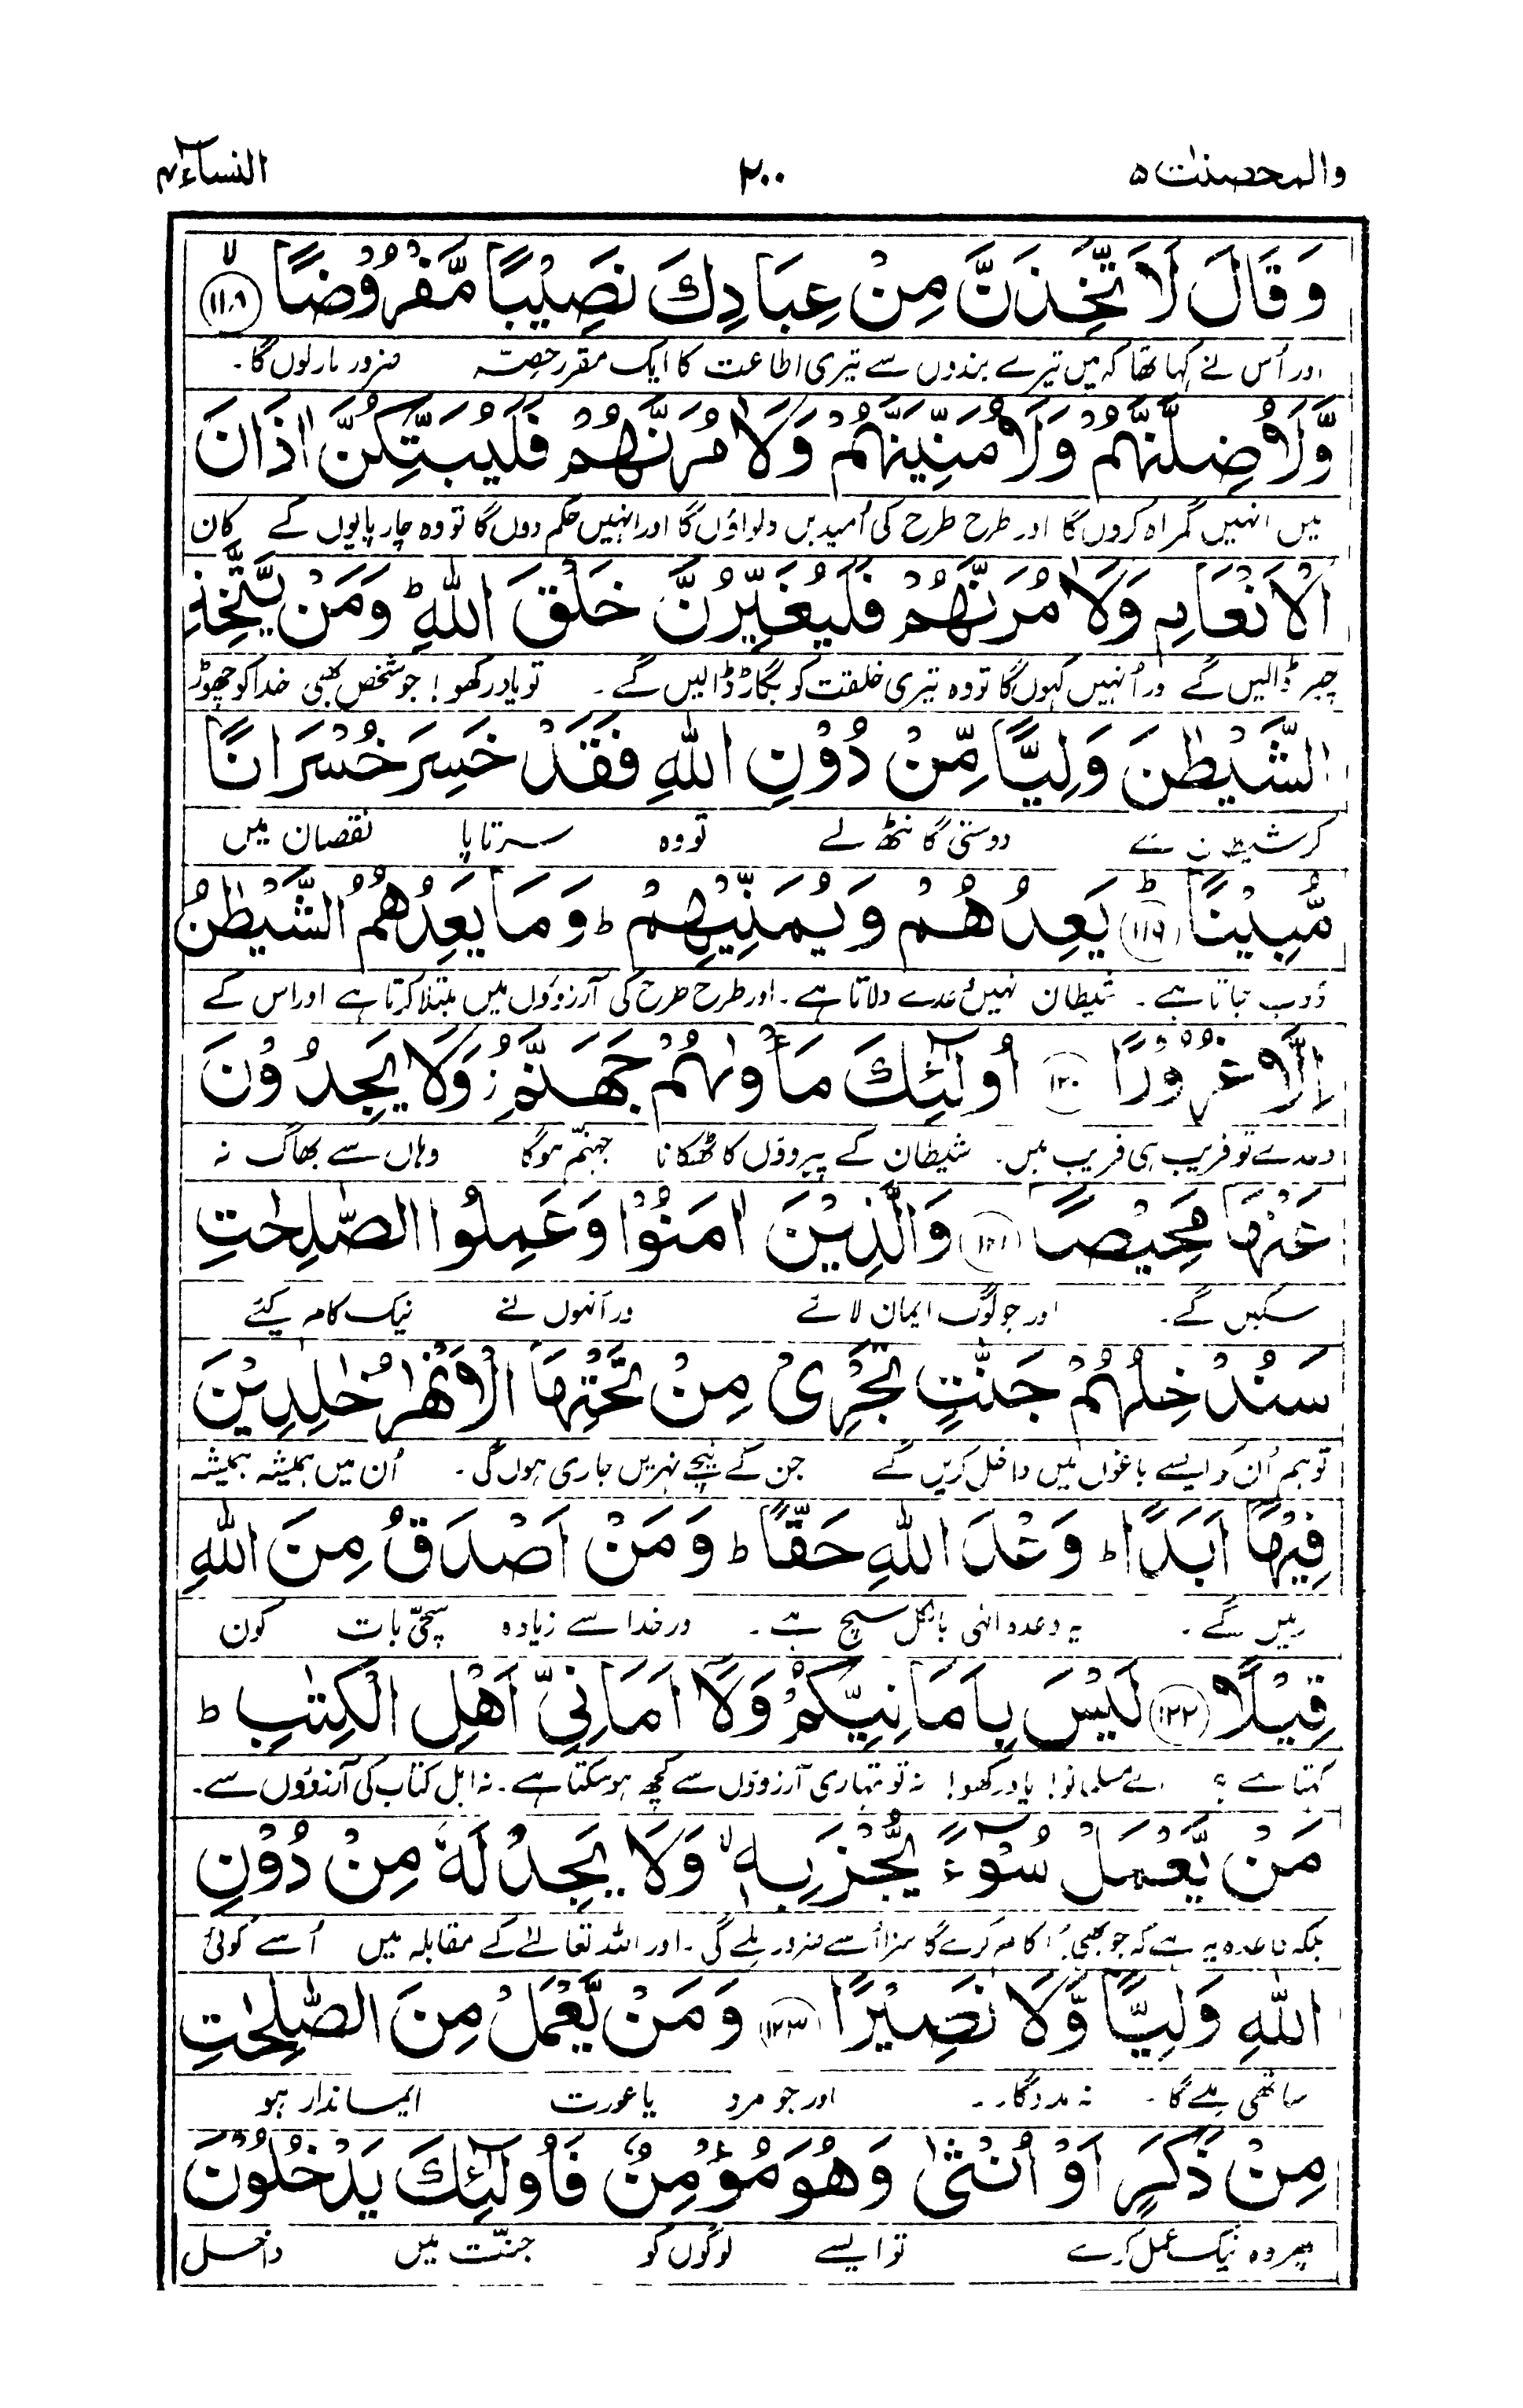 والمحصنٰت ۵ ۲۰۰ النساء ۴
وَقَالَ لَاَتَّخِذَنَّ مِنْ عِبَادِكَ نَصِيْبًا مَّفْرُوْضًا ﴿۱۱۸﴾ ۙ
اور اُس نے کہا تھا کہ میں تیرے بندوں سے تیری اطاعت کا ایک مقرر حصّہ ضرور مار لوں گا۔
وَّلَاُضِلَّنَّهُمْ وَلَاُمَنِّيَنَّهُمْ وَلَاٰمُرَنَّهُمْ فَلَيُبَتِّكُنَّ اٰذَانَ
میں انہیں گمراہ کروں گا اور طرح طرح کی اُمیدیں دلواؤں گا اور انہیں حکم دوں گا تو وہ چارپایوں کے کان
الْاَنْعَامِ وَلَاٰمُرَنَّهُمْ فَلَيُغَيِّرُنَّ خَلْقَ اللّٰهِ ؕ وَمَنْ يَّتَّخِذِ
چیر ڈالیں گے اور اُنہیں کہوں گا تو وہ تیری خلقت کو بگاڑ ڈالیں گے۔ تو یاد رکھو! جو شخص بھی خدا کو چھوڑ
الشَّيْطٰنَ وَلِيًّا مِّنْ دُوْنِ اللّٰهِ فَقَدْ خَسِرَ خُسْرَانًا
کر شیطان سے دوستی گانٹھ لے تو وہ سرتاپا نقصان میں
مُّبِيْنًا ﴿۱۱۹﴾ ؕ يَعِدُهُمْ وَيُمَنِّيْهِمْ ؕ وَمَا يَعِدُهُمُ الشَّيْطٰنُ
ڈوب جاتا ہے۔ شیطان انہیں وعدے دلاتا ہے۔ اور طرح طرح کی آرزوؤں میں مبتلا کرتا ہے اور اس کے
اِلَّا غُرُوْرًا ﴿۱۲۰﴾ اُولٰٓئِكَ مَاْوٰىهُمْ جَهَنَّمُ ز وَلَا يَجِدُوْنَ
وعدے تو فریب ہی فریب ہیں۔ شیطان کے پیرووں کا ٹھکانا جہنّم ہوگا وہاں سے بھاگ نہ
عَنْهَا مَحِيْصًا ﴿۱۲۱﴾ وَالَّذِيْنَ اٰمَنُوْا وَعَمِلُوا الصّٰلِحٰتِ
سکیں گے۔ اور جو لوگ ایمان لائے اور اُنہوں نے نیک کام کیئے
سَنُدْخِلُهُمْ جَنّٰتٍ تَجْرِىْ مِنْ تَحْتِهَا الْاَنْهٰرُ خٰلِدِيْنَ
تو ہم اُن کو ایسے باغوں میں داخل کریں گے جن کے نیچے نہریں جاری ہوں گی۔ اُن میں ہمیشہ ہمیشہ
فِيْهَآ اَبَدًا ؕ وَعْدَ اللّٰهِ حَقًّا ؕ وَمَنْ اَصْدَقُ مِنَ اللّٰهِ
رہیں گے۔ یہ وعدہ الٰہی بالکل سچ ہے۔ اور خدا سے زیادہ سچّی بات کون
قِيْلًا ﴿۱۲۲﴾ لَيْسَ بِاَمَانِيِّكُمْ وَلَآ اَمَانِىِّ اَهْلِ الْكِتٰبِ ؕ
کہتا ہے؟ اے مسلمانو! یاد رکھو! نہ تو تمہاری آرزووں سے کچھ ہو سکتا ہے۔ نہ اہل کتاب کی آرزووں سے۔
مَنْ يَّعْمَلْ سُوْٓءًا يُّجْزَ بِهٖ ۙ وَلَا يَجِدْ لَهٗ مِنْ دُوْنِ
بلکہ قاعدہ یہ ہے کہ جو بھی بُرا کام کرے گا سزا اُسے ضرور ملے گی۔ اور اللہ تعالےٰ کے مقابلہ میں اُسے کوئی
اللّٰهِ وَلِيًّا وَّلَا نَصِيْرًا ﴿۱۲۳﴾ وَمَنْ يَّعْمَلْ مِنَ الصّٰلِحٰتِ
ساتھی ملے گا۔ نہ مددگار۔ اور جو مرد یا عورت ایماندار ہو
مِنْ ذَكَرٍ اَوْ اُنْثٰى وَهُوَ مُؤْمِنٌ فَاُولٰٓئِكَ يَدْخُلُوْنَ
پھر وہ نیک عمل کرے تو ایسے لوگوں کو جنّت میں داخل